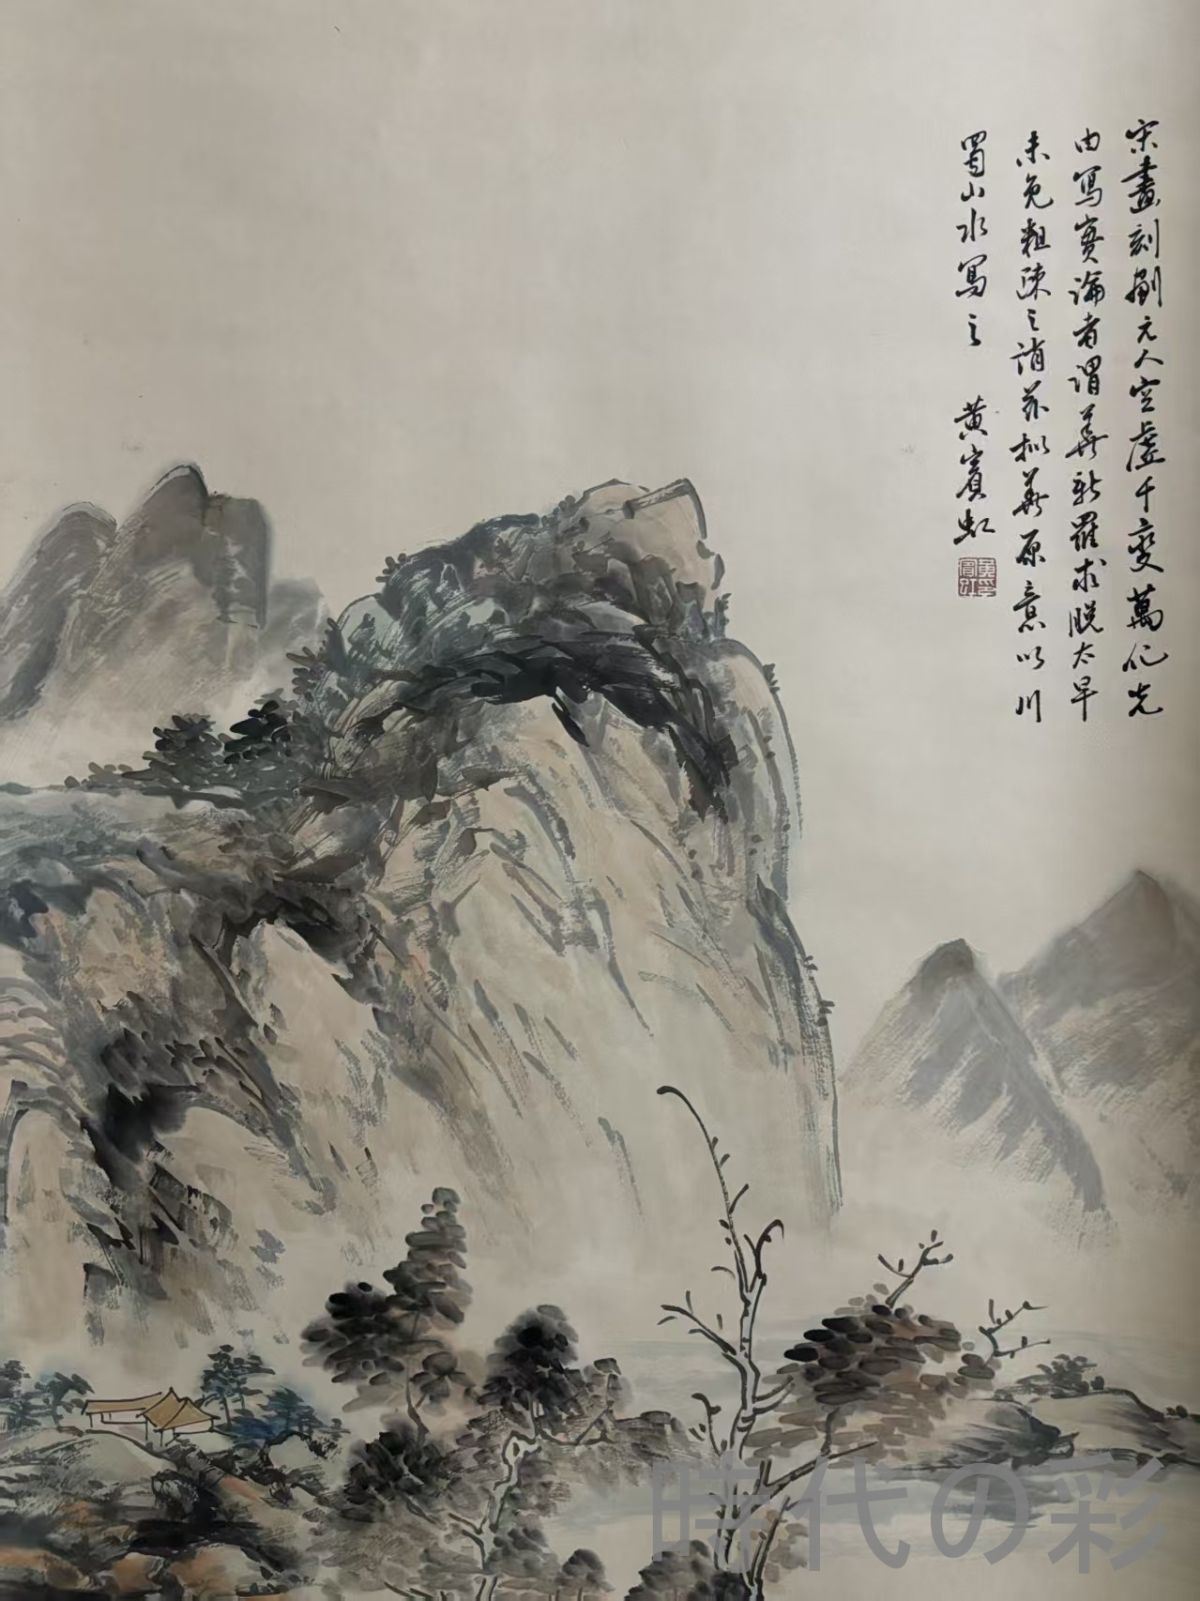 宋畫刻劃元人空虛千變萬化先
由寫實論者謂華新羅求脫太早
未免粗疎之誚茲擬華原意以川
蜀山水寫之 黃賓虹
時代の彩